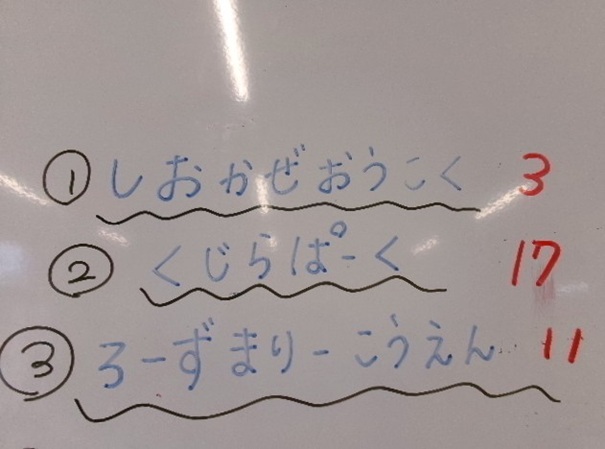 ① しおかぜおうこく 3
② くじらぱーく 17
③ ろーずまりーこうえん 11